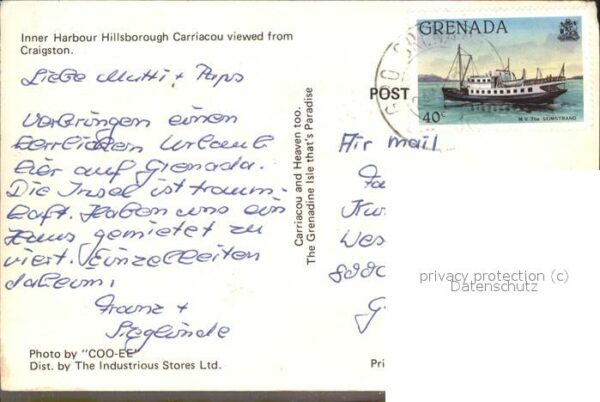 Inner Harbour Hillsborough Carriacou viewed from
Craigston.
Liebe Mutti + Paps
Verbringen einen
herrlichen Urlaub
hier auf Grenada.
Die Insel ist traum-
haft. Haben uns ein
Haus gemietet zu
viert. Einzelheiten
daheim!
Franz +
Sieglinde
Photo by "COO-EE"
Dist. by The Industrious Stores Ltd.
Carriacou and Heaven too.
The Grenadine Isle that's Paradise
POST
GRENADA
40c
Air mail
Fa
Wes
Pri
privacy protection (c)
Datenschutz